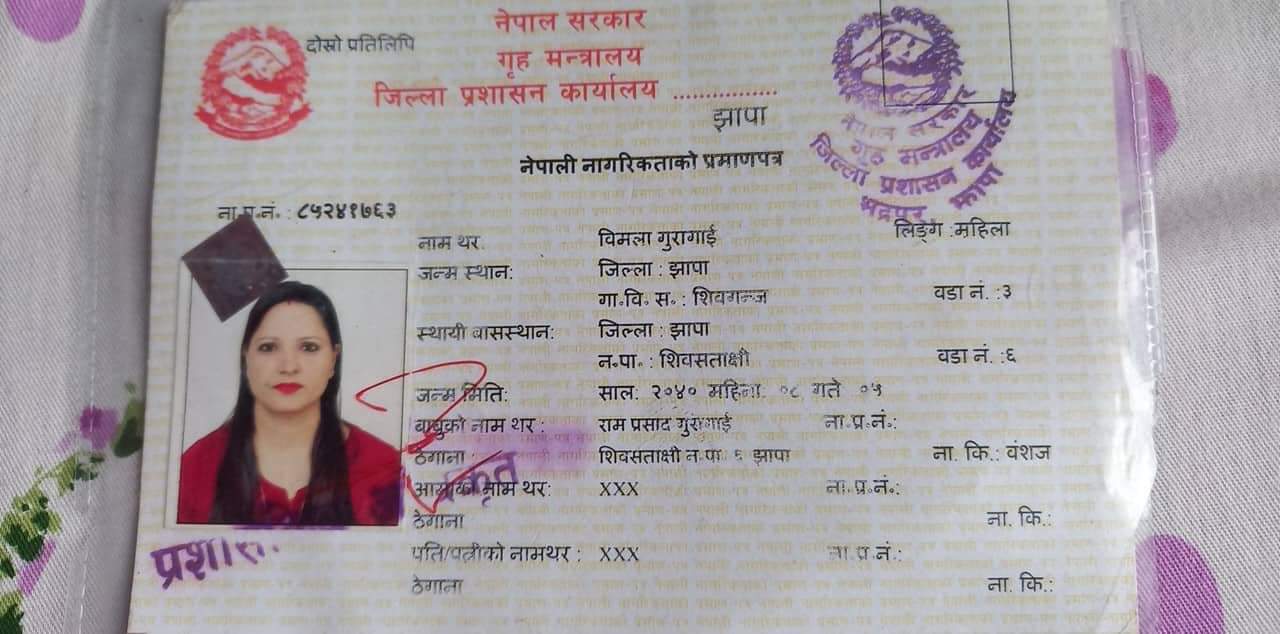 दोस्रो प्रतिलिपि
नेपाल सरकार
गृह मन्त्रालय
जिल्ला प्रशासन कार्यालय ................
झापा
नेपाली नागरिकताको प्रमाणपत्र
नेपाल सरकार
गृह मन्त्रालय
जिल्ला प्रशासन कार्यालय
भद्रपुर झापा
ना.प्र.नं. : ८५२४१७६३
नाम थर: विमला गुरागाई लिङ्ग :महिला
जन्म स्थान: जिल्ला : झापा
गा.वि. स. : शिवगन्ज वडा नं. :३
स्थायी बासस्थान: जिल्ला : झापा
न.पा. : शिवसताक्षी वडा नं. :६
जन्म मिति: साल: २०४० महिना. ०८ गते ०५
बाबुको नाम थर : राम प्रसाद गुरागाई ना.प्र.नं.:
ठेगाना : शिवसताक्षी न.पा ६ झापा ना. कि.: वंशज
आमाको नाम थर: XXX ना.प्र.नं.:
ठेगाना ना. कि.:
पति/पत्नीको नामथर : XXX ना.प्र.नं.:
ठेगाना ना. कि.: